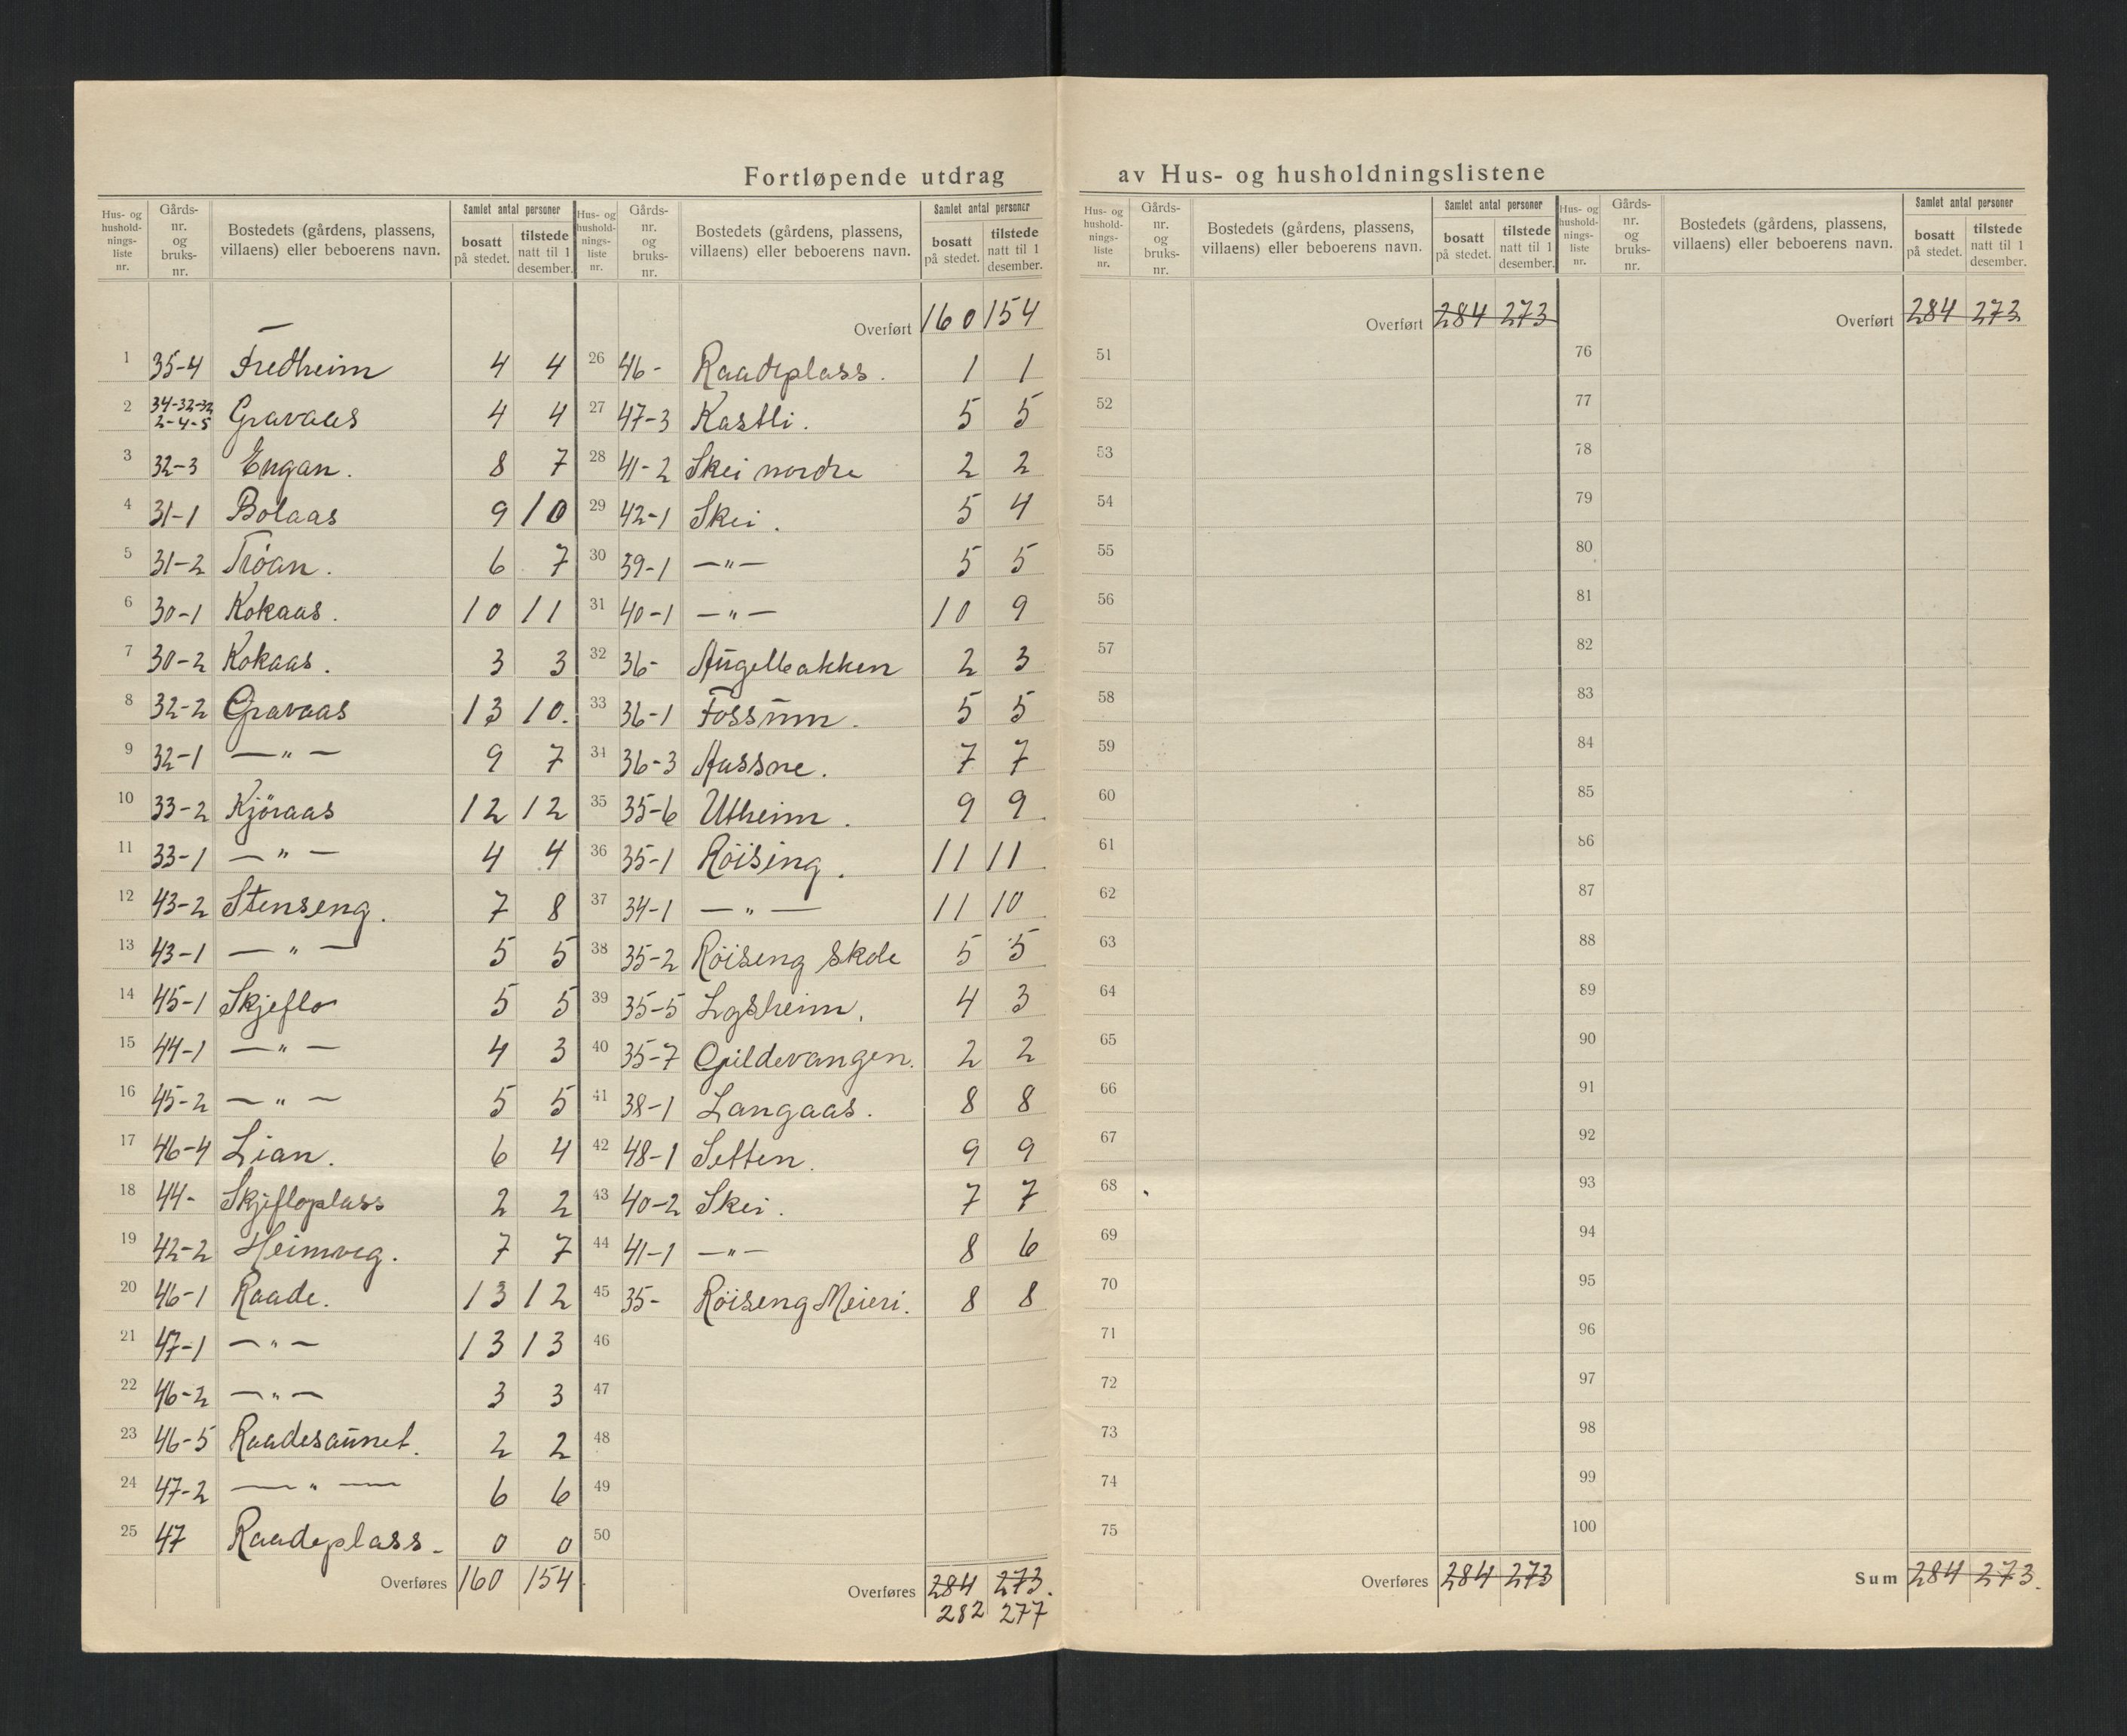 Fortløpende utdrag av Hus- og husholdningslistene
Hus- og hushold-nings-liste nr. | Gårds-nr. og bruks-nr. | Bostedets (gårdens, plassens, villaens) eller beboerens navn. | Samlet antal personer | bosatt på stedet. | tilstede natt til 1 desember.
1 35-4 Fredheim 4 4
2 34-32-32 2-4-5 Gravaas 4 4
3 32-3 Engan. 8 7
4 31-1 Bolaas 9 10
5 31-2 Trøan. 6 7
6 30-1 Kokaas. 10 11
7 30-2 Kokaas. 3 3
8 32-2 Gravaas 13 10.
9 32-1 — " — 9 7
10 33-2 Kjöraas 12 12
11 33-1 — " — 4 4
12 43-2 Stenseng. 7 8
13 43-1 — " — 5 5
14 45-1 Skjeflo 5 5
15 44-1 — " — 4 3
16 45-2 — " — 5 5
17 46-4 Lian. 6 4
18 44- Skjefloplass 2 2
19 42-2 Heimveg. 7 7
20 46-1 Raade. 13 12
21 47-1 — " — 13 13
22 46-2 — " — 3 3
23 46-5 Raadesaunet. 2 2
24 47-2 — " — 6 6
25 47 Raadeplass - 0 0
Overføres 160 154
Hus- og hushold-nings-liste nr. | Gårds-nr. og bruks-nr. | Bostedets (gårdens, plassens, villaens) eller beboerens navn. | Samlet antal personer | bosatt på stedet. | tilstede natt til 1 desember.
Overført 160 154
26 46- Raadeplass. 1 1
27 47-3 Kastli. 5 5
28 41-2 Skei nordre 2 2
29 42-1 Skei. 5 4
30 39-1 — " — 5 5
31 40-1 — " — 10 9
32 36- Haugelbakken 2 3
33 36-1 Fossum. 5 5
34 36-3 Aassne. 7 7
35 35-6 Utheim. 9 9
36 35-1 Röising. 11 11
37 34-1 — " — 11 10
38 35-2 Röiseng skole 5 5
39 35-5 Lysheim. 4 3
40 35-7 Gildevangen. 2 2
41 38-1 Langaas. 8 8
42 48-1 Setten. 9 9
43 40-2 Skei. 7 7
44 41-1 — " — 8 6
45 35- Röiseng Meieri. 8 8
46
47
48
49
50
Overføres 284 273.
282 277
Hus- og hushold-nings-liste nr. | Gårds-nr. og bruks-nr. | Bostedets (gårdens, plassens, villaens) eller beboerens navn. | Samlet antal personer | bosatt på stedet. | tilstede natt til 1 desember.
Overført 284 273
51
52
53
54
55
56
57
58
59
60
61
62
63
64
65
66
67
68
69
70
71
72
73
74
75
Overføres 284 273
Hus- og hushold-nings-liste nr. | Gårds-nr. og bruks-nr. | Bostedets (gårdens, plassens, villaens) eller beboerens navn. | Samlet antal personer | bosatt på stedet. | tilstede natt til 1 desember.
Overført 284 273
76
77
78
79
80
81
82
83
84
85
86
87
88
89
90
91
92
93
94
95
96
97
98
99
100
Sum 284 273.